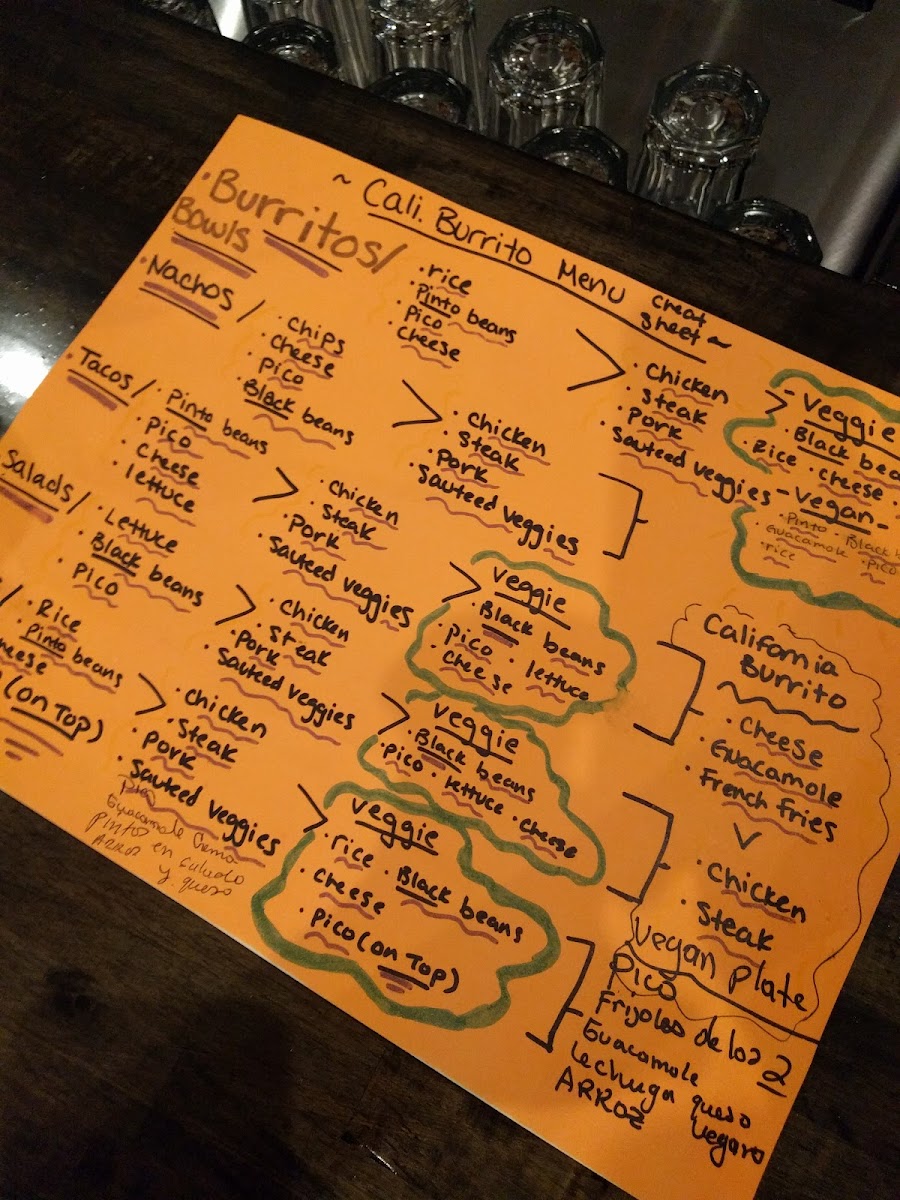 ~ Cali. Burrito Menu cheat sheet ~
• Burritos/
Bowls
• rice
• Pinto beans
• Pico
• Cheese
• Chicken
• Steak
• Pork
• Sauteed veggies
- Veggie
• Black
• Rice • cheese
- Vegan -
• Pinto • Black
• Guacamole • Pico
• rice
• Nachos /
• Chips
• Cheese
• Pico
• Black beans
• Chicken
• Steak
• Pork
• Sauteed veggies
• Tacos /
• Pinto beans
• Pico
• Cheese
• lettuce
• Chicken
• Steak
• Pork
• Sauteed veggies
Veggie
• Black beans
• Pico • lettuce
• Cheese
Salads/
• Lettuce
• Black beans
• Pico
• Chicken
• Steak
• Pork
• Sauteed veggies
Veggie
• Black beans
• Pico • lettuce • cheese
• Rice
• Pinto beans
(on Top)
• Chicken
• Steak
• Pork
• Sauteed veggies
Veggie
• rice • Black beans
• Cheese
• Pico (on Top)
California
Burrito
• Cheese
• Guacamole
• French Fries
• Chicken
• Steak
Vegan Plate
Pico
Frijoles de los 2
Guacamole
lechuga queso
ARROZ vegano
Guacamole Crema
Pinto en caludo
Arroz y queso